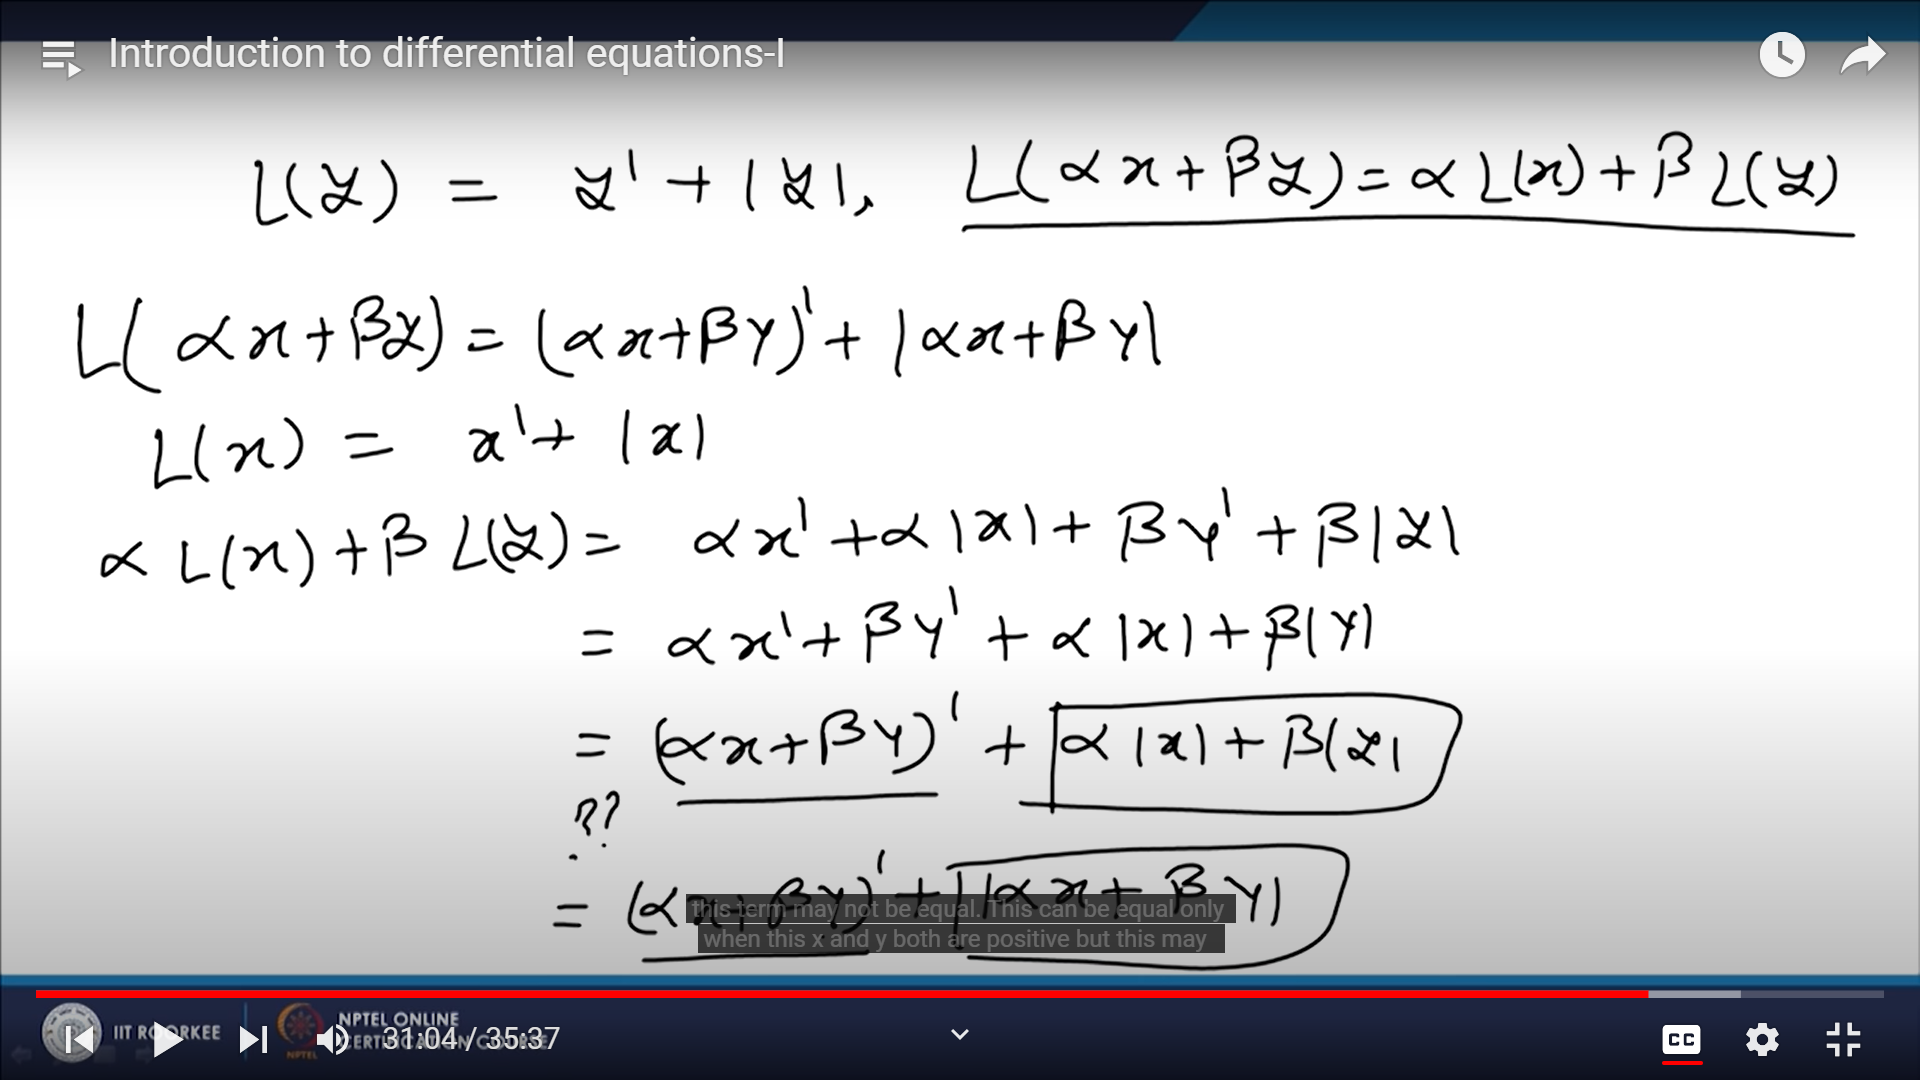 Introduction to differential equations-I
L(y) = y' + |y|, L(αx+βy) = αL(x) + βL(y)
L(αx+βy) = (αx+βy)' + |αx+βy|
L(x) = x' + |x|
αL(x) + βL(y) = αx' + α|x| + βy' + β|y|
= αx' + βy' + α|x| + β|y|
= (αx+βy)' + α|x| + β|y|
??
= (αx+βy)' + |αx+βy|
this term may not be equal. This can be equal only
when this x and y both are positive but this may
IIT ROORKEE
NPTEL ONLINE
CERTIFICATION COURSE
NPTEL
31:04 / 35:37
CC